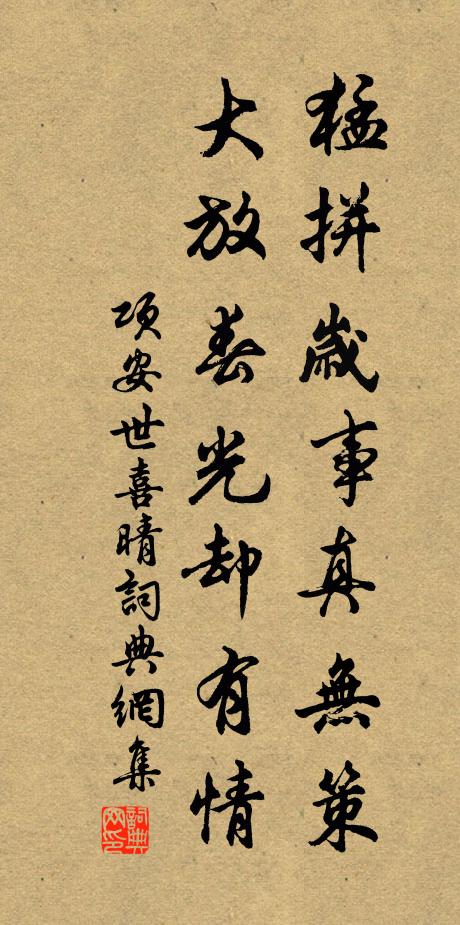 猛拼歲事真無策
大放春光却有情
項安世喜晴詞典網集
詞典網印